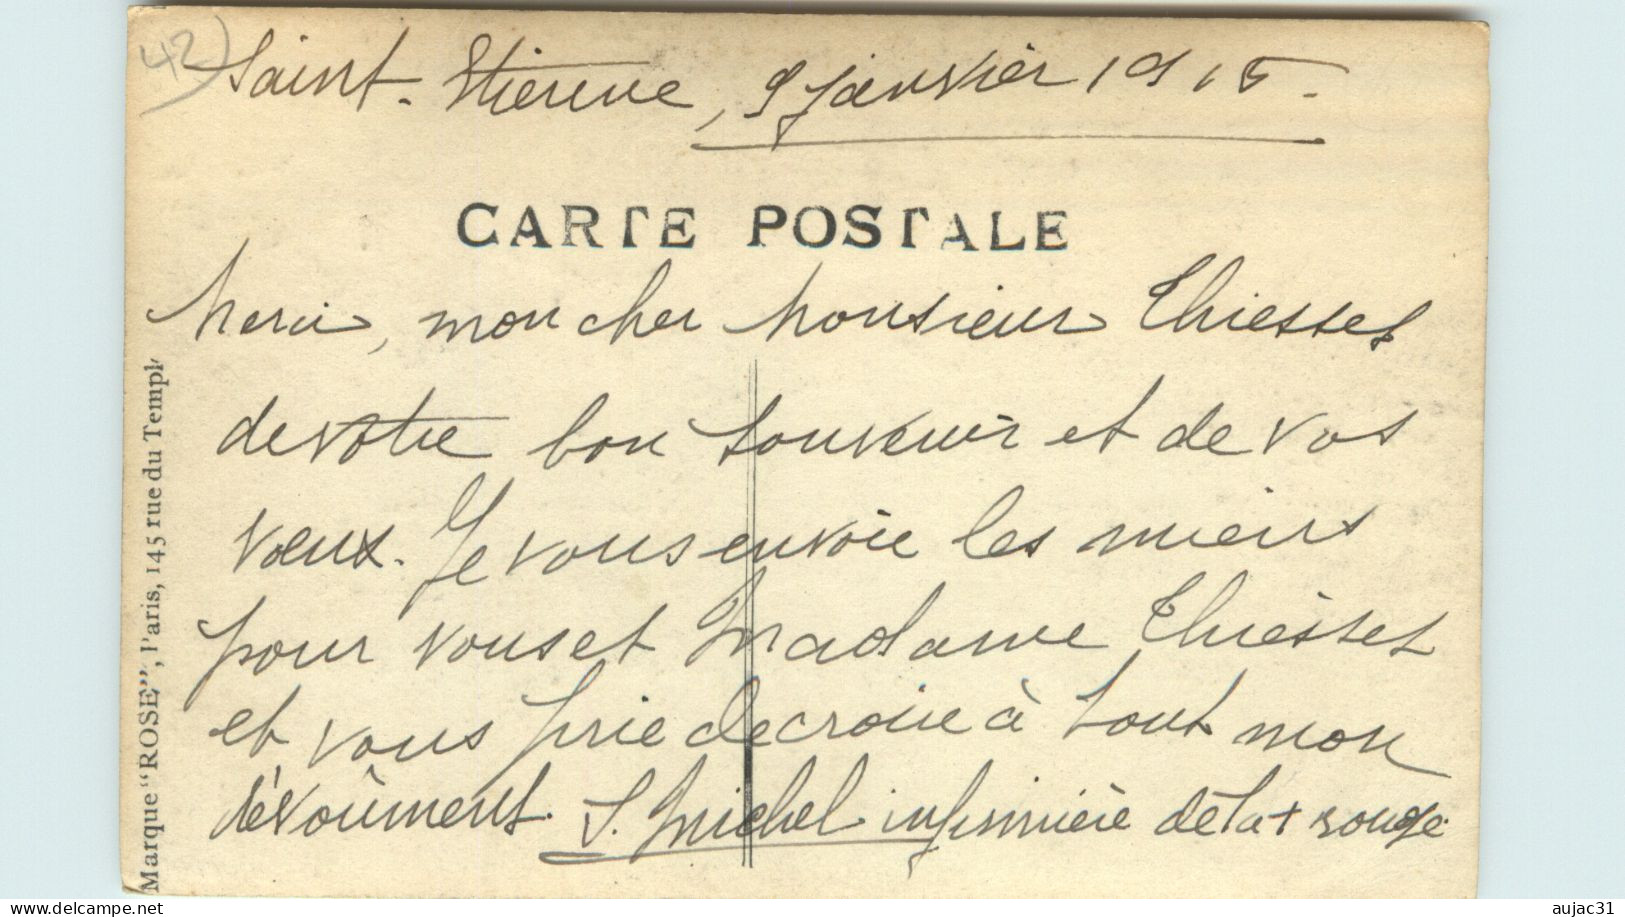 42)
Saint-Etienne, 9 janvier 1915.
CARTE POSTALE
Merci, mon cher Monsieur Thiesset
de votre bon souvenir et de vos
vœux. Je vous envoie les miens
pour vous et Madame Thiesset
et vous prie de croire à tout mon
dévoûment. S. Michel infirmière de la + rouge
Marque "ROSE", Paris, 145 rue du Templ
www.delcampe.net
aujac31